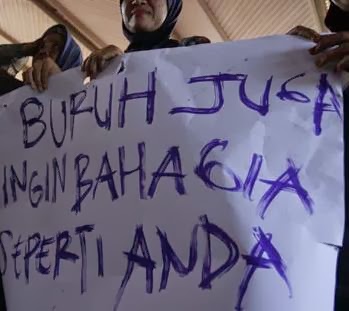 BURUH JUGA
INGIN BAHAGIA
SEPERTI ANDA